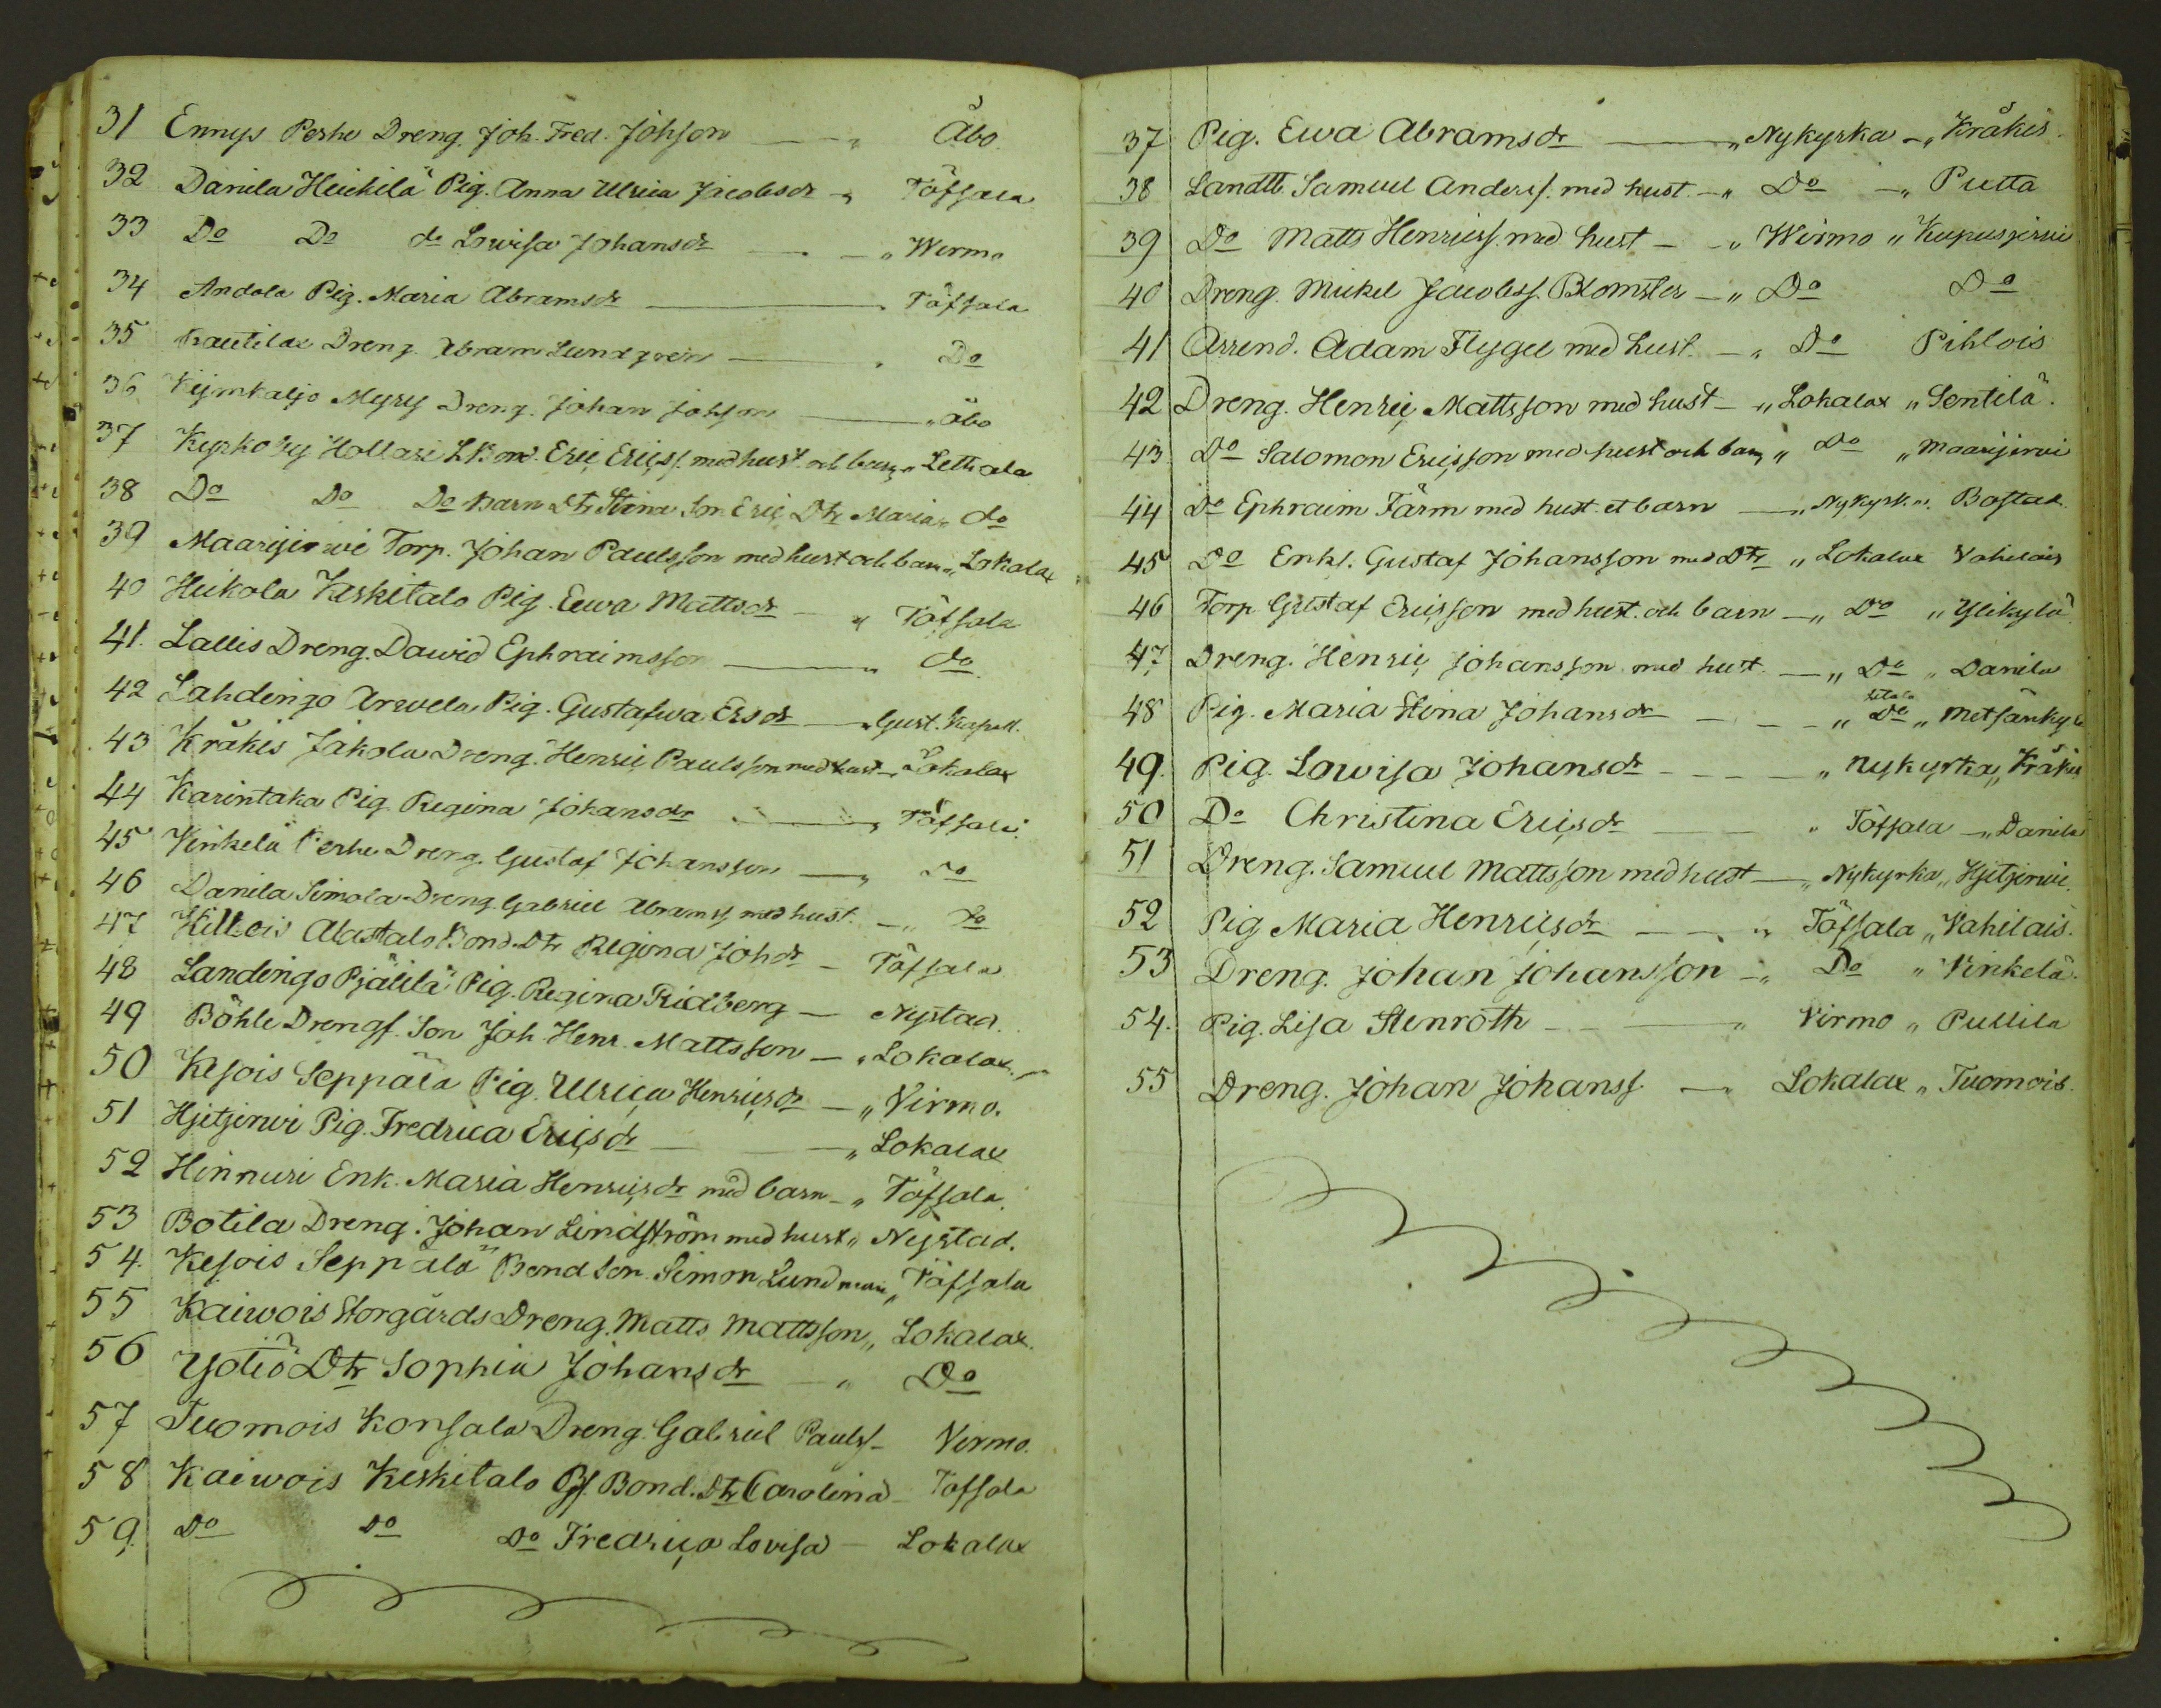 31 Ennys Perhe Dreng. Joh. Fred. Johsson — „ Åbo.
32 Danila Heickilä Pig. Anna Ulrica Jacobsdr „ Töfsala
33 Do Do do Lowisa Johansdr — „ Wirmo
34 Andola Pig. Maria Abramsdr — „ Töfsala
35 Kautilax Dreng Abram Lundgren — „ Do
36 Kijmkaljo Myry Dreng. Johan Johsson — „ Åbo
37 Kyrkoby Hollari Eric Ericss. med hust. och barn „ Lettala
38 Do Do Do barn Dtr Stina Son Eric Dtr Maria „ do
39 Maarijerwi Torp. Johan Paulsson med hust och barn „ Lokalax
40 Heikola Keskitalo Pig. Eewa Mattsdr — „ Töfsala
41. Lallis Dreng. Dawid Ephraimsson — „ do
42 Lahdingo Arwela Pig. Gustafwa Ersdr — „ Gust. Kapell.
43 Kråkis Jakola Dreng. Henric Paulsson med hust — Lokalax
44 Karintaka Pig. Regina Johansdr — „ Töfsala
45 Vinkelä Perhe Dreng. Gustaf Johansson — „ Do
46 Danila Simola Dreng. Gabriel Abramss. med hust. — „ Do
47 Killois Alastalo Bond. Dtr Regina Johdr — Töfsala
48 Landingo Pjälilä Pig. Regina Ridberg — Nystad.
49 Böhle Drengs. Son Joh. Henr. Mattsson — „ Lokalax
50 Kesois Seppälä Pig. Ulrica Henricsdr — „ Virmo.
51 Hjitjerwi Pig. Fredrica Ericsdr — „ Lokalax
52 Hinnuri Enk. Maria Henricsdr med barn — „ Töfsala.
53 Botila Dreng. Johan Lindström med hust „ Nystad.
54. Kesois Seppälä Bond Son. Simon Lundman „ Töfsala
55 Kaiwois Storgårds Dreng. Matts Mattsson „ Lokalax.
56 Yotiö Dtr Sophia Johansdr — „ Do
57 Tuomois Konsala Dreng. Gabriel Paulss — Virmo.
58 Kaiwois Keskitalo Bond. Dtr Carolina — Töfsala
59. Do Do Do Fredrica Lovisa — Lokalax
37 Pig. Ewa Abramsdr — „ Nykyrka — „ Kråkis.
38 Landtb. Samuel Anderss. med hust. — „ Do — „ Putta
39 Do Matts Henricss. med hust — „ Wirmo „ Kupusjerwi
40 Dreng. Mickel Jacobss. Blomster — „ Do Do
41 Arrend. Adam Flygel med hust. — „ Do Pihlois
42 Dreng. Henric Mattsson med hust — „ Lokalax „ Sentilä.
43 Do Salomon Ericsson med hust och barn „ Do „ Maarijerwi
44 Do Ephraim Färm med hust. et barn — „ Nykyrk. „ Bostad
45 Do Enkl. Gustaf Johansson med Dtr „ Lokalax Vahilais
46 Torp Gustaf Ericsson med hust. och barn — „ Do „ Ylikylä
47 Dreng. Henric Johansson med hust. — „ Do „ Danila
48 Pig. Maria Stina Johansdr — „ Do „ Metsänkylä
49. Pig. Lowisa Johansdr — „ Nykyrka „ Kråkis
50 Do Christina Ericsdr — „ Töfsala — „ Danila
51 Dreng. Samuel Mattsson med hust — „ Nykyrka „ Hjitjerwi.
52 Pig Maria Henricsdr — „ Töfsala „ Vahilais.
53 Dreng. Johan Johansson — „ Do „ Vinkelä.
54. Pig. Lisa Stenroth — „ Virmo „ Pullila
55 Dreng. Johan Johanss — „ Lokalax „ Tuomois.